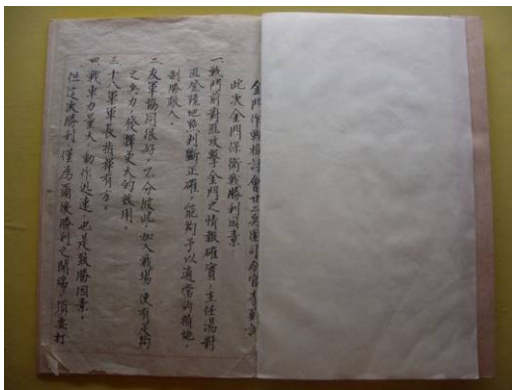 金門作戰檢討會廿二兵團司令官李對訓
此次金門保衛戰勝利因素:
一 戰鬥前對匪攻擊金門之情報確實,主任湯對
匪登陸地點判斷正確,能夠予以適當的措施,
制勝敵人。
二 友軍協同很好,不分彼此,加入戰場,使有足夠
之兵力,發揮更大的效用。
三 十八軍軍長指揮有方。
四 戰車力量大,動作迅速,也是致勝因素。
但這次勝利僅為爾後勝利之開端,須要打